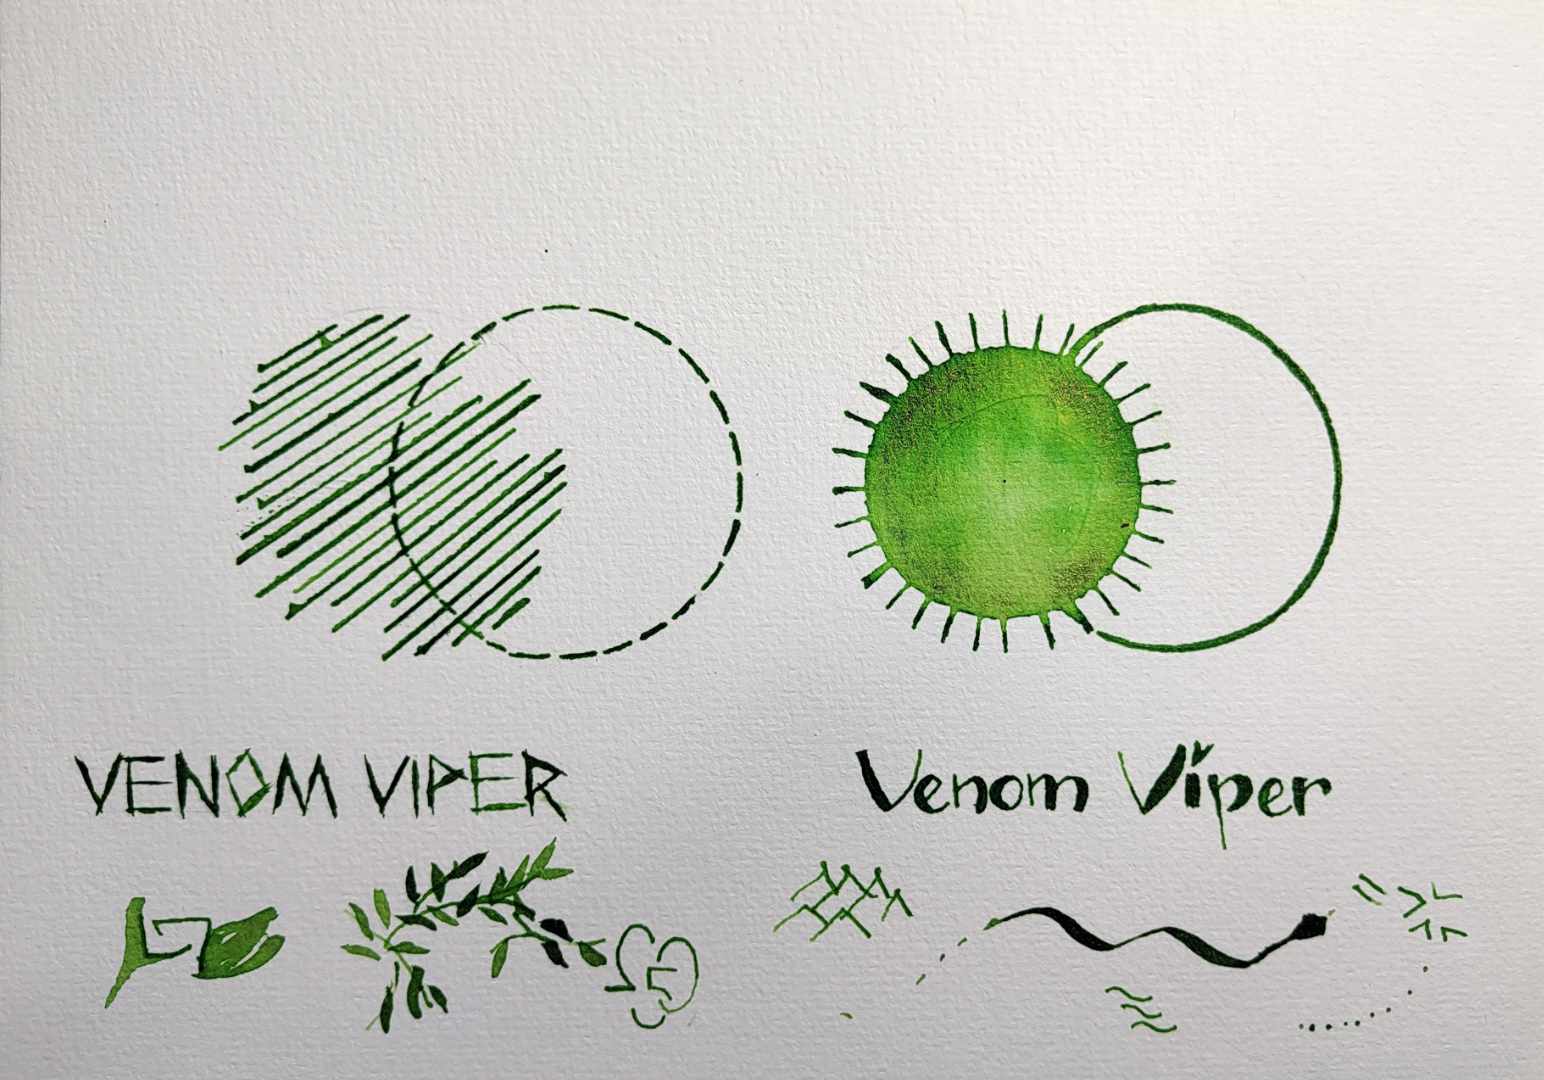 VENOM VIPER
Venom Viper